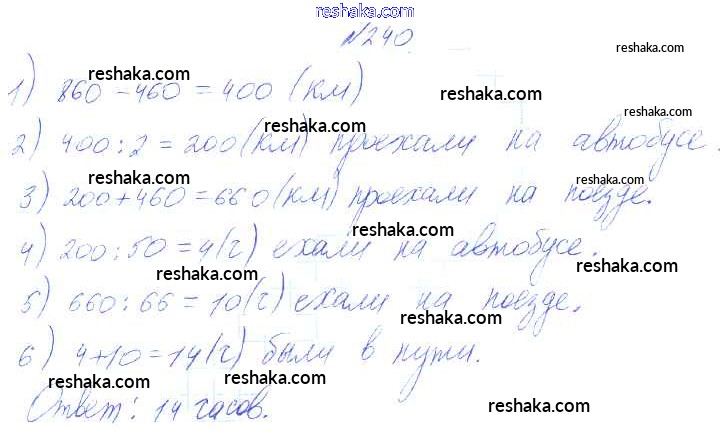 reshaka.com
№240.
reshaka.com
reshaka.com
1) 860 - 460 = 400 (км)
reshaka.com
reshaka.com
reshaka.com
2) 400 : 2 = 200 (км) проехали на автобусе.
reshaka.com
reshaka.com
3) 200 + 460 = 660 (км) проехали на поезде.
reshaka.com
4) 200 : 50 = 4 (ч) ехали на автобусе.
reshaka.com
reshaka.com
5) 660 : 66 = 10 (ч) ехали на поезде.
reshaka.com
6) 4 + 10 = 14 (ч) были в пути.
reshaka.com
reshaka.com
Ответ: 14 часов.
reshaka.com